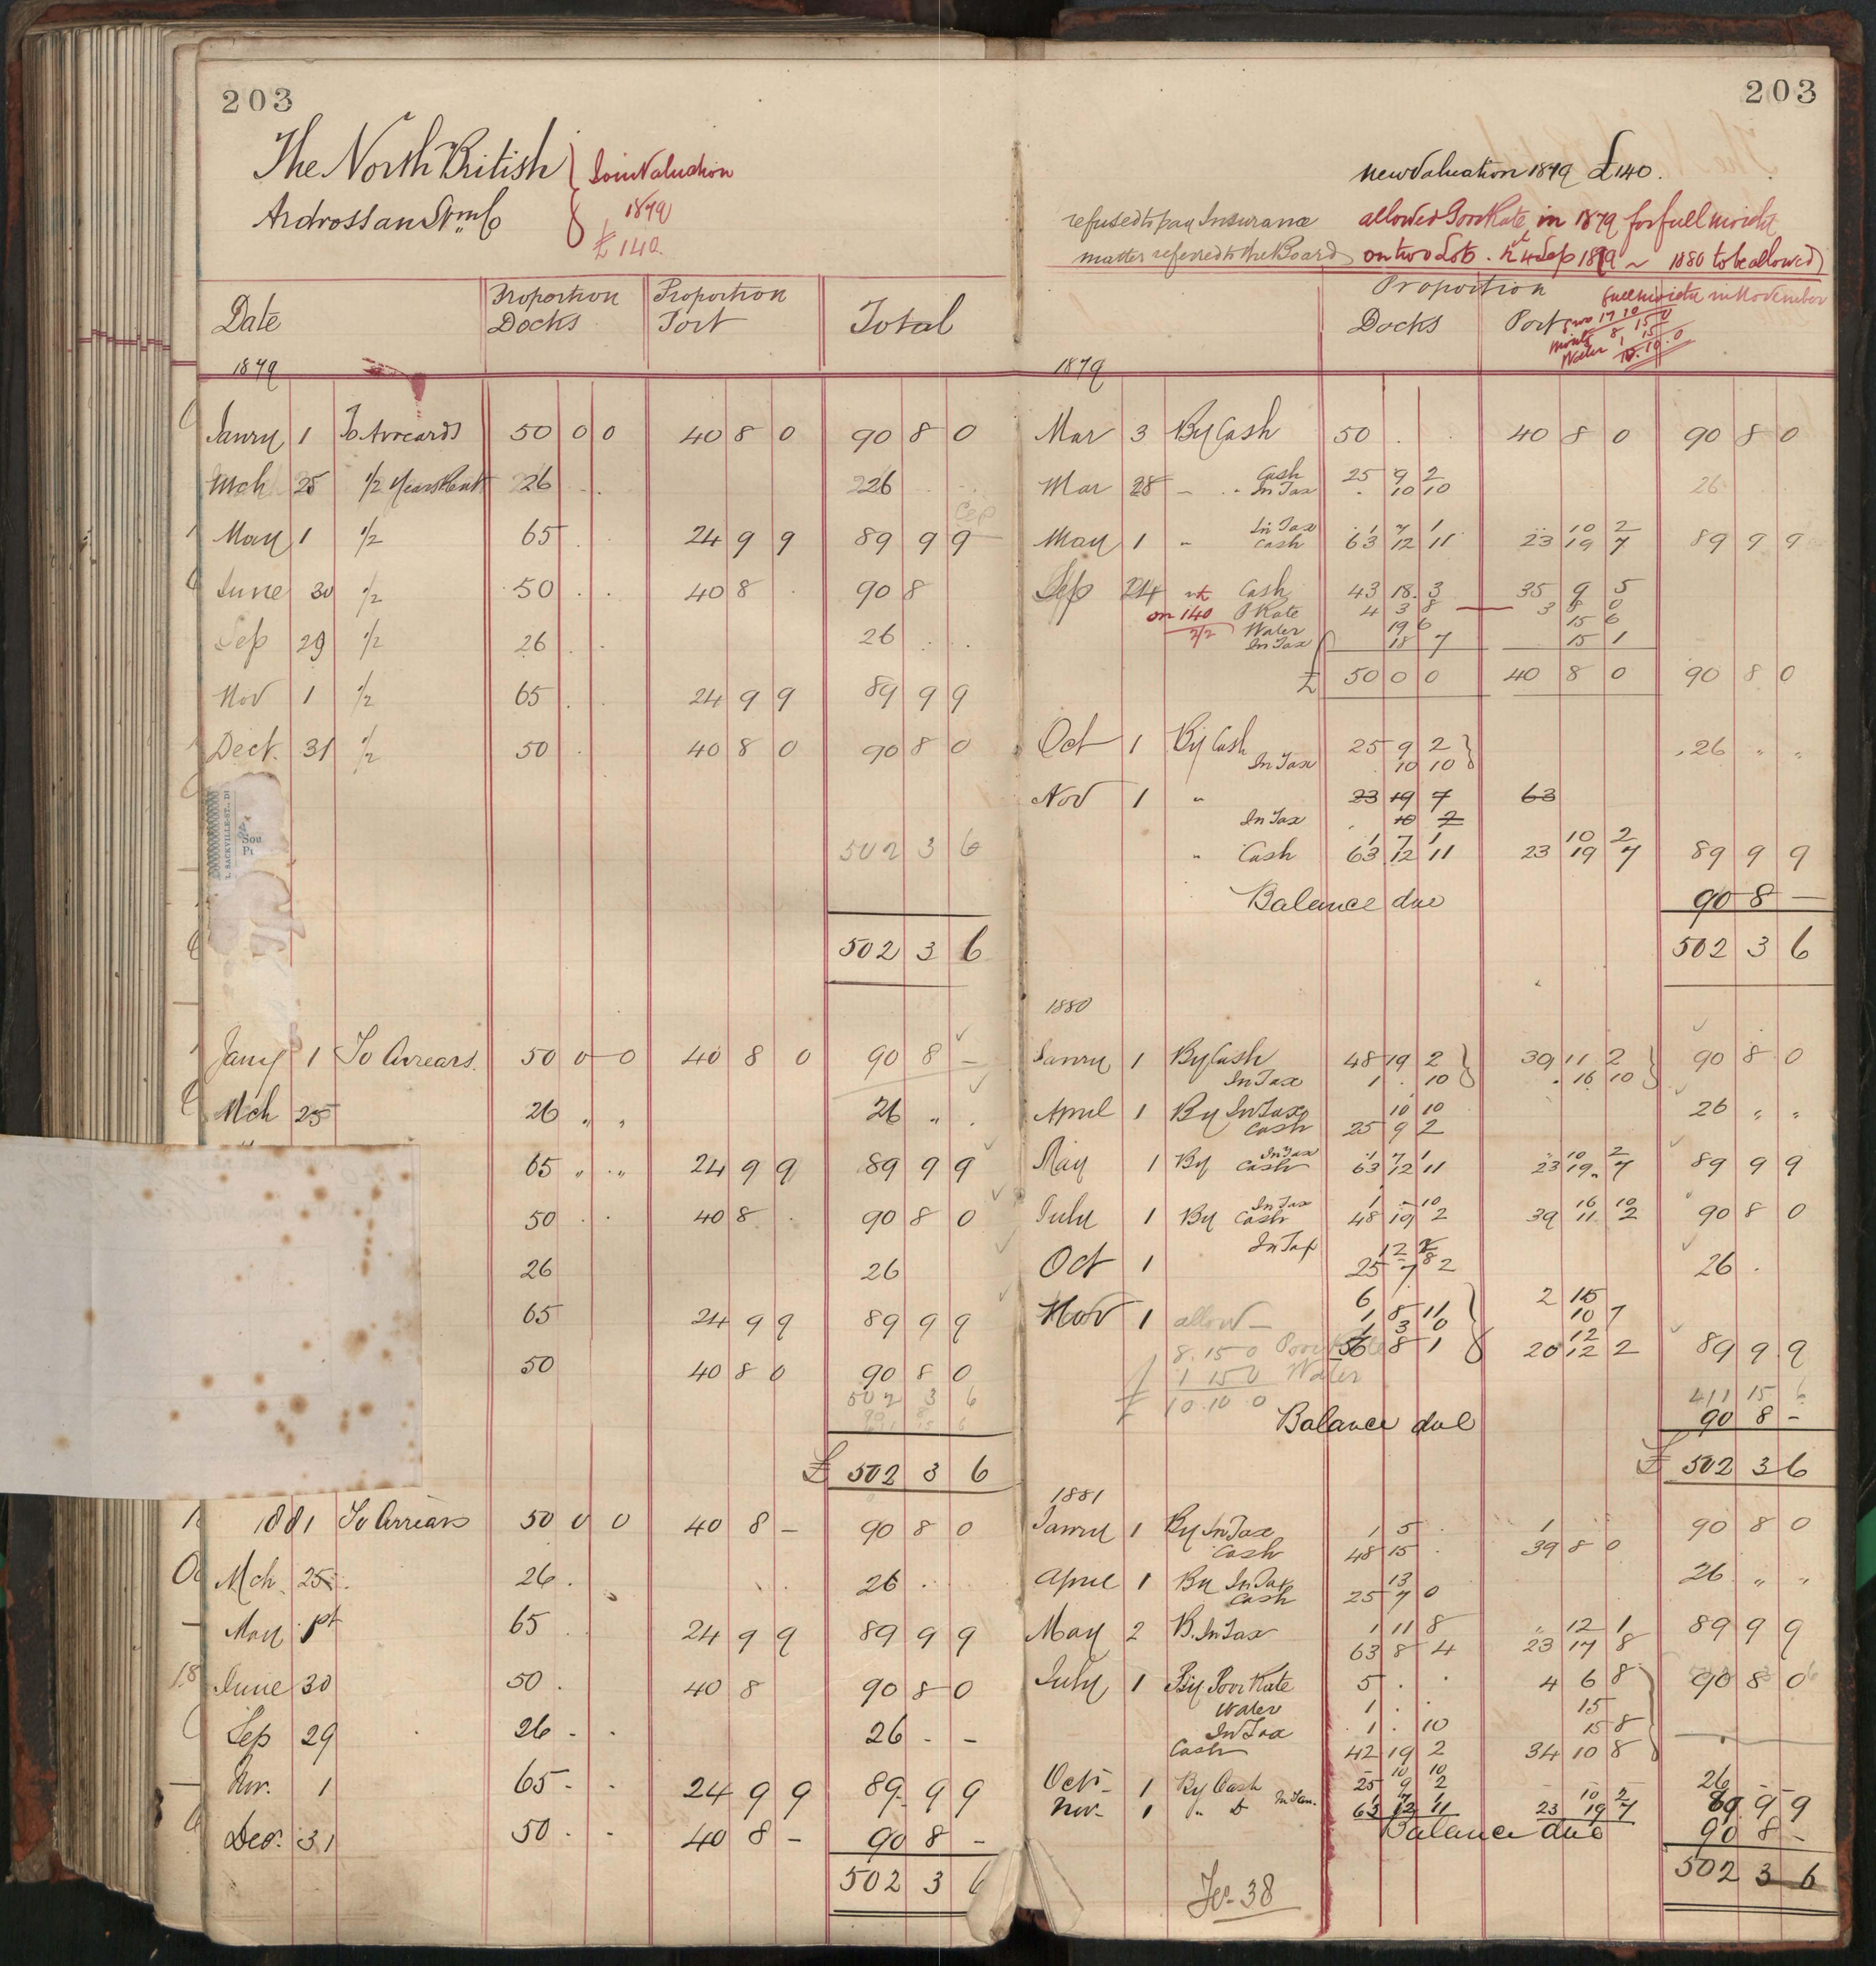 203
The North British
Ardrossan Stm Co
Joint Valuation
1879
£140.
Date
Proportion Docks
Proportion Port
Total
1879
Janry 1 To Arrears 50 0 0 40 8 0 90 8 0
Mch 25 ½ Years Rent 26 . . 26 . .
May 1 ½ 65 . . 24 9 9 89 9 9
June 30 ½ 50 . . 40 8 . 90 8
Sep 29 ½ 26 . . 26 . .
Nov 1 ½ 65 . . 24 9 9 89 9 9
Dect. 31 ½ 50 . 40 8 0 90 8 0
SACKVILLE-ST., D
Sou
502 3 6
502 3 6
Jany 1 To Arrears. 50 0 0 40 8 0 90 8 –
Mch 25 26 " " 26 " .
65 " " 24 9 9 89 9 9
50 . . 40 8 . 90 8 0
26 26
65 24 9 9 89 9 9
50 40 8 0 90 8 0
502 3 6
£ 502 3 6
1881 To Arrears 50 0 0 40 8 – 90 8 0
Mch 25 26 . 26 .
May 1st 65 . . 24 9 9 89 9 9
June 30 50 . 40 8 90 8 0
Sep 29 26 - . 26 - -
Nov. 1 65 - . 24 9 9 89 9 9
Dec. 31 50 . - 40 8 – 90 8 –
502 3 6
203
new Valuation 1879 £140.
refused to pay Insurance
matter referred to the Board
allowed Poor Rate in 1879 for full moiety
on two Lots. 24 Sep 1879 ~ 1880 to be allowed
full moiety in November
Proportion
Docks
Port
two 17 10 0
Moiety 8 15
Water 1 15
10.10.0
1879
Mar 3 By Cash 50 . . 40 8 0 90 8 0
Mar 28 – " Cash 25 9 2
In Tax . 10 10 26
May 1 – In Tax 1 7 1 10 2
Cash 63 12 11 23 19 7 89 9 9
Sep 24 Cash 43 18 3 35 9 5
on 140 P Rate 4 3 8 3 8 0
2/2 Water 19 6 15 6
In Tax 18 7 15 1
£ 50 0 0 40 8 0 90 8 0
Oct 1 By Cash 25 9 2
In Tax 10 10 26 " "
Nov 1 " 23 19 7 63
In Tax . 10 2
1 7 1 10 2
" Cash 63 12 11 23 19 7 89 9 9
Balance due 90 8 –
502 3 6
1880
Janry 1 By Cash 48 19 2 39 11 2 90 8 0
In Tax 1 . 10 . 16 10
April 1 By In Tax 10 10
Cash 25 9 2 26 " "
May 1 By In Tax 1 7 1 10 2
Cash 63 12 11 23 19 7 89 9 9
July 1 By In Tax 1 – 10 16 10
Cash 48 19 2 39 11 2 90 8 0
In Tax
Oct 1 25 7 2 26 .
6 2 15
Nov 1 allow – 1 8 11 10 7
1 3 0 12
56 8 1 20 12 2 89 9 9
8. 15 0 Poor Rate
1 15 0 Water
£ 10.10 0
411 15 6
Balance due 90 8 –
£ 502 3 6
1881
Janry 1 By In Tax 1 5 . 1 90 8 0
Cash 48 15 . 39 8 0
April 1 By In Tax 13
Cash 25 7 0 26 " "
May 2 B. In Tax 1 11 8 " 12 1 89 9 9
63 8 4 23 17 8
July 1 By Poor Rate 5 . . 4 6 8 90 8 0
Water 1 . . 15
In Tax 1 . 10 15 8
Cash 42 19 2 34 10 8
10 10
Oct 1 By Cash 25 9 2 26 – –
1 7 1 10 2
Nov– 1 " Do In Tax. 63 12 11 23 19 7 89 9 9
Balance due 90 8 –
502 3 6
Fo. 38